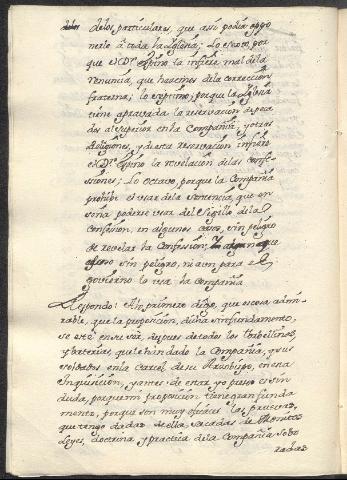 delos particulares, que assi podia oppo
nerlo â toda la Iglesia; Lo sexto, por
que el Dr. Espino la infiere mal dela
renuncia, que hacemos dela correccion
fraterna; lo septimo, porque la Iglesia
tiene aprovada la reservacion de peca
dos al superior en la Compañia, y otras
Religiones, y desta reservacion infiere
el Dr. Espino la revelacion delas Confe-
ssiones; Lo octavo, porque la Compañia
prohibe el usar dela sentencia, que en
seña poderse usar del Sigillo dela
Confession, en algunos casos, sin peligro
de revelar la Confession,
sin peligro, ni aun para el
govierno lo usa la Compañia
Respondo: A lo primero digo, que es cosa admi
rable, que la proposicion, dicha sin fundamento,
se esté en su ser, despues de todos los torbellinos,
y baterias, que le han dado la Compañia, y sus
soldados en la Carcel de su Arzobispo, en esta
Inquisicion, y antes de estar yo preso es sin
duda, porque mi proposicion tiene gran funda
mento, porque son muy eficaces las pruevas,
que tengo dadas de ella, sacadas de
Leyes, doctrina, y practica dela Compañia. Sobo